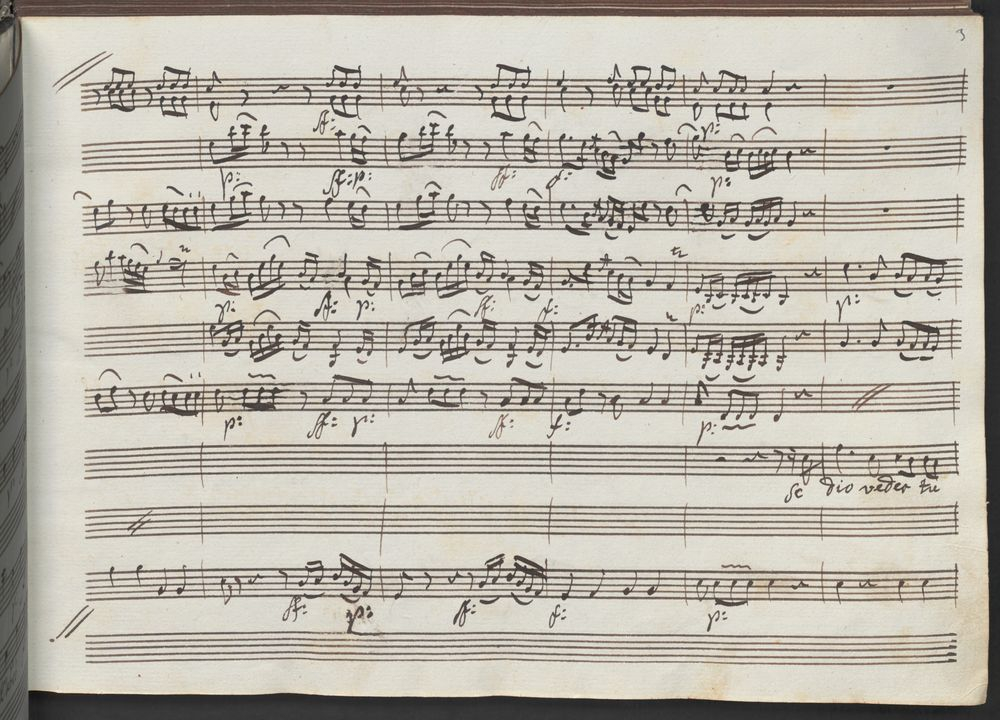 3
sf:
p:
p: sf: p: sf: f: p:
p: sf: p: sf: f: p: p:
p: sf: p: sf: f: p:
se dio veder tu
sf: p: sf: f: p: